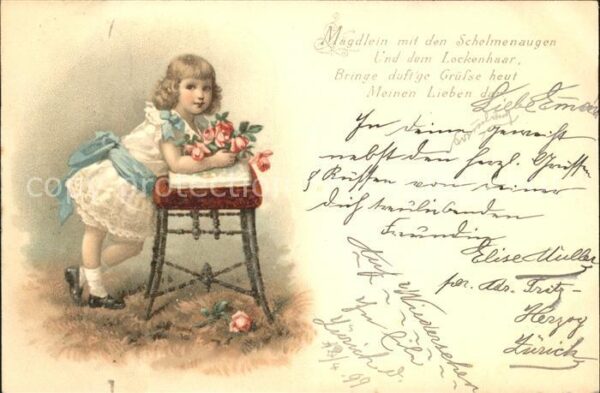 Mägdlein mit den Schelmenaugen
Und dem Lockenhaar,
Bringe duft'ge Grüsse heut
Meinen Lieben dar
Liebe Emma
In deine
nebst den herzl. Grüssen
& Küssen von deiner
dich treuliebenden
Freundin
Elise Müller
per. Adr. Fritz
Herzog
Zürich
Auf Wiedersehen
Zürich d.